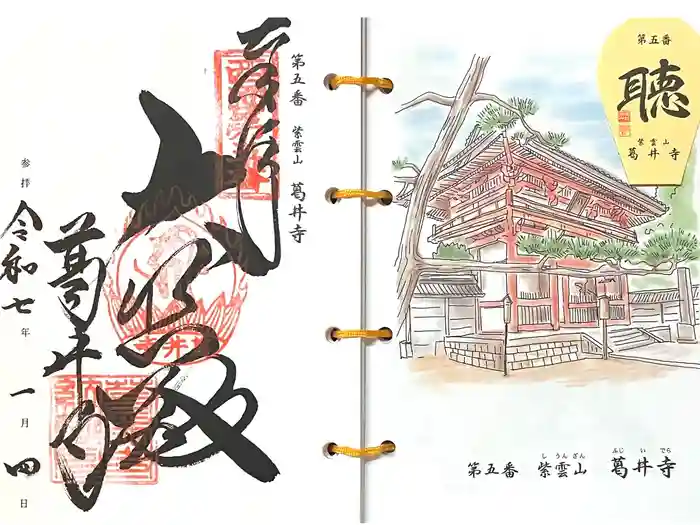 第五番
紫雲山
葛井寺
奉拝
大悲殿
葛井寺
参拝
令和七年
一月四日
第五番
聴
紫雲山
葛井寺
しうんざん
ふじいでら
第五番 紫雲山 葛井寺